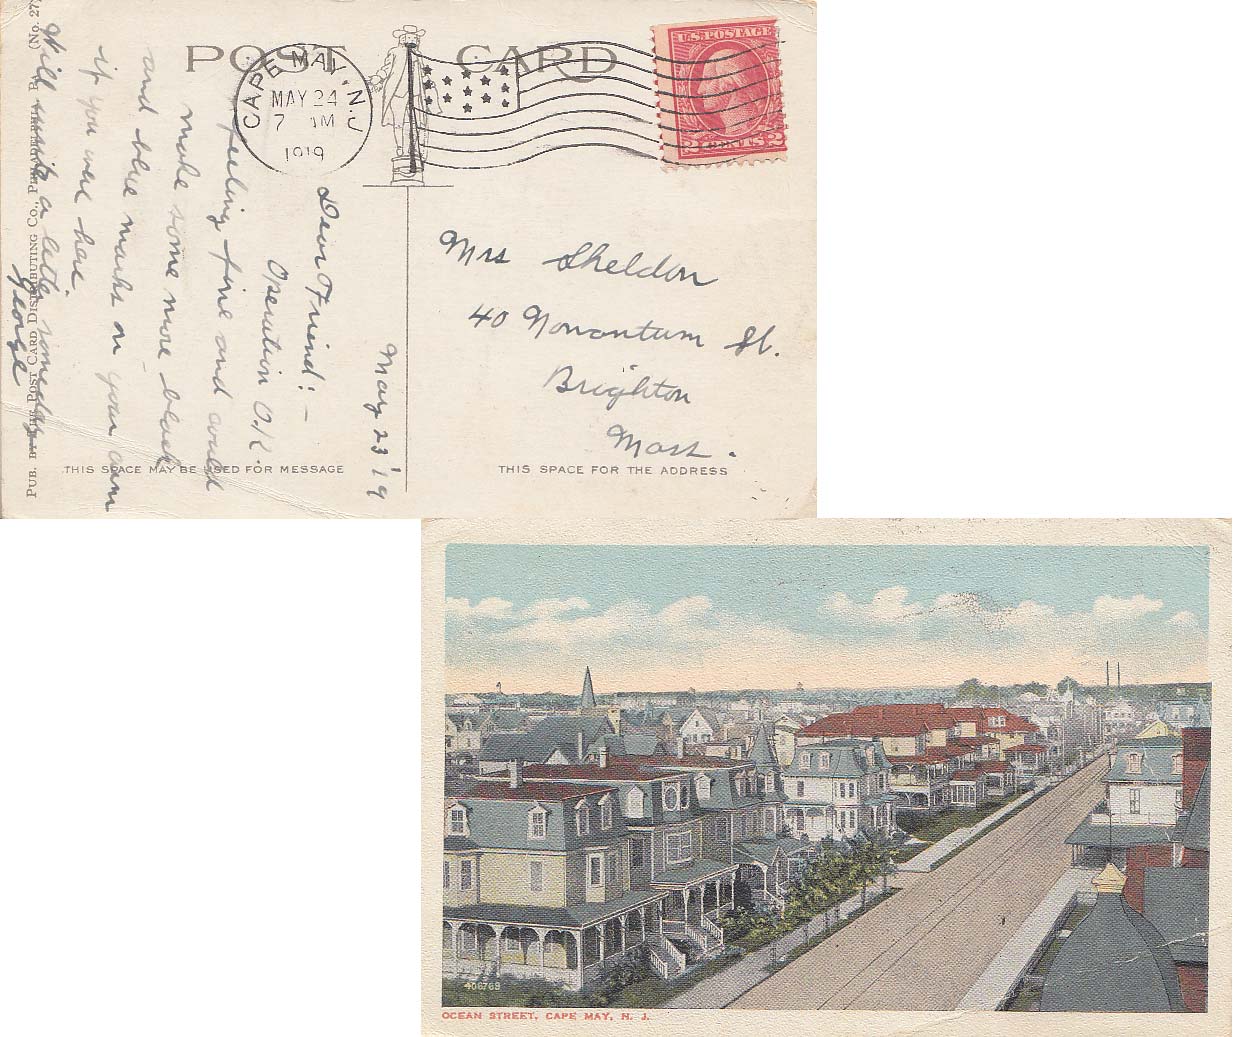 POST CARD
CAPE MAY, N.J.
MAY 24
7 AM
1919
U.S. POSTAGE
2 CENTS 2
May 23 '19
Dear Friend: -
Operation O.K.
feeling fine and could
make some more black
and blue marks on your arm
if you were here.
Will write a letter some day.
George
Mrs Sheldon
40 Nonantum St.
Brighton
Mass.
THIS SPACE MAY BE USED FOR MESSAGE
THIS SPACE FOR THE ADDRESS
PUB. BY THE POST CARD DISTRIBUTING CO., PHILADELPHIA, PA. (No. 27)
406769
OCEAN STREET, CAPE MAY, N. J.